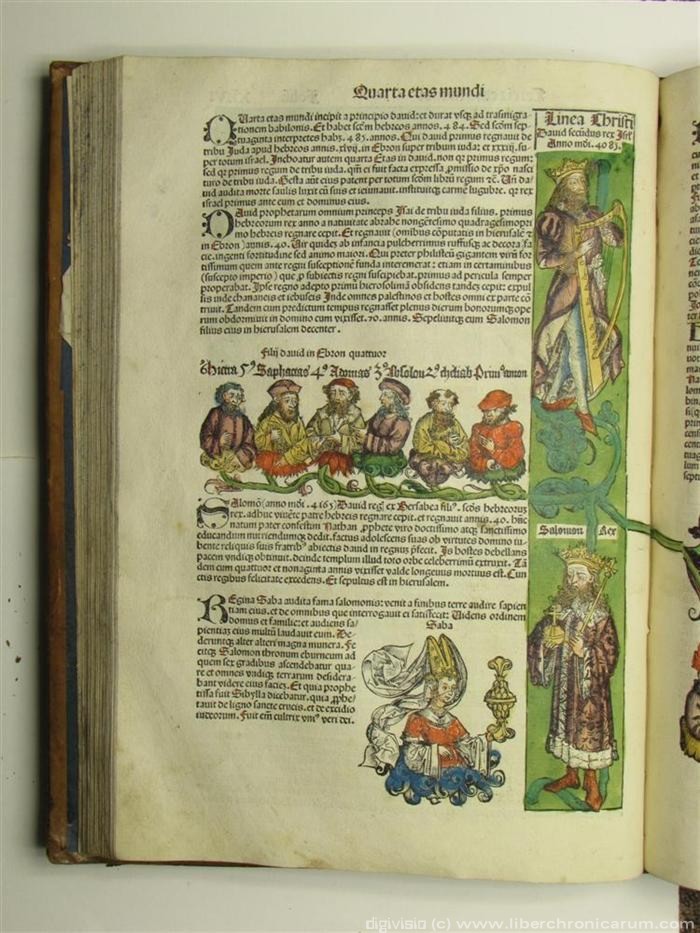 Quarta etas mundi
QUarta etas mundi incipit a principio dauid: et durat usq; ad trasmigra⸗
tionem babilonis. Et habet scdm hebreos annos. 484. Sed scdm sep⸗
tuaginta interpretes habz. 485. annos. Qui dauid primus regnauit de
tribu Juda apud hebreos annos. xlvij. in Ebron super tribum iuda: et xxxiij. su⸗
per totum israel. Inchoatur autem quarta Etas in dauid. non qr primus regum:
sed qr primus regum de tribu iuda.
turo de tribu iuda. Gesta aut eius patent per totum scdm librū regum
uid audita morte saulis luxit cū suis et ieiunauit. instituitq; carmē lugubre. qr rex
israel primus ante eum et dominus eius.
DAuid prophetarum omnium princeps Isai de tribu iuda filius. primus
hebreorum rex anno a natiuitate abrahe nongetesimo quadragesimopri
mo hebreis regnare cepit. Et regnauit (omnibus cōputatis in hierusalē
in Ebron) annis. 40. Uir quides ab infancia pulcherrimus ruffusq; ac decora fa⸗
cie. ingenti fortitudine sed animo maiori. Qui preter philisteū gigantem virū for⸗
tissimum quem ante regni susceptionē funda interemerat: etiam in certaminibus
(suscepto imperio) que p subiectis regni suscipiebat. primus ad pericula semper
properabat. Ipse regno adepto primū hierosolimā obsidens tandez cepit: expul
sis inde chananeis et iebuseis Inde omnes palestinos et hostes omni ex parte cō
triuit. Tandem cum predictum tempus regnasset plenus dierum bonorumq; ope
rum obdormiuit in domino cum vixisset. 70. annis. Sepeliuitq; eum Salomon
filius eius in hierusalem decenter.
Linea Christi
Dauid secūdus rex Isrl'
Anno mōi. 4083.
Filij dauid in Ebron quattuor
5⁹ Saphacias 4⁹ Adonias 3⁹ Absolon 2⁹ cheliab Prim⁹ amon
SAlomō (anno mōi. 4165) Dauid regis ex Bersabea fili⁹. scds hebreorum
rex. adhuc viuēte patre hebreis regnare cepit. et regnauit annis. 40. hūc
natum pater confestim Nathan pphete viro doctissimo atq; sanctissimo
educandum nutriendumq; dedit. factus adolescens suas ob virtutes domino iu⸗
bente reliquis suis fratribus abiectis dauid in regnū pfecit. Is hostes debellans
pacem vndiq; obtinuit. deinde templum illud toto orbe celeberrimū extruxit. Tā
dem cum quattuor et nonaginta annis vixisset valde longeuus mortuus est. Cun
ctos regibus felicitate excedens. Et sepultus est in hierusalem.
Salomon Rex
REgina Saba audita fama salomonis: venit a finibus terre audire sapien
tiam eius. et de omnibus que interrogauit ei satisfecit: Uidens ordinem
domus et familie: et audiens sa⸗
pientiaz eius multū laudauit eum. De⸗
deruntq; alter alteri magna munera. Fe
citq; Salomon thronum eburneum ad
quem sex gradibus ascendebatur qua⸗
re et omnes vndiq; terrarum desidera⸗
bant videre eius faciez. Et quia prophe
tissa fuit Sibylla dicebatur. quia pphe⸗
tauit de ligno sancte crucis. et de excidio
iudeorum. Fuit eni cultrix vni⁹ veri dei.
Saba
digivisio (c) www.liberchronicarum.com